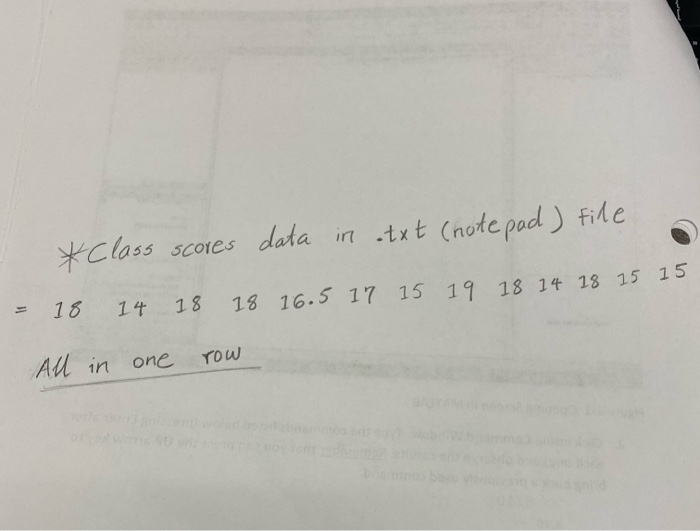 *Class scores data in .txt (notepad) File
= 18 14 18 18 16.5 17 15 19 18 14 18 15 15
All in one row